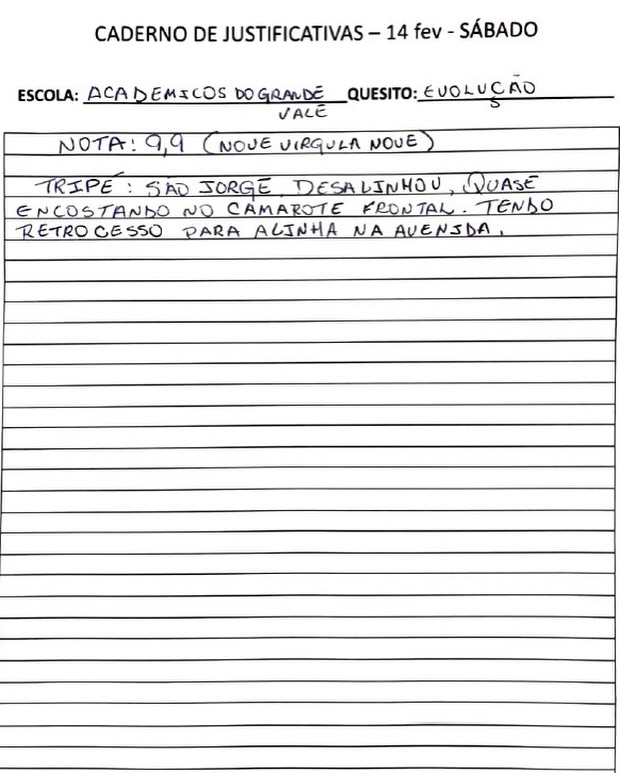 CADERNO DE JUSTIFICATIVAS – 14 fev - SÁBADO
ESCOLA: ACADEMICOS DO GRANDE VALE QUESITO: EVOLUÇÃO
NOTA: 9,9 (NOVE VIRGULA NOVE)
TRIPÉ: SÃO JORGE DESALINHOU, QUASE
ENCOSTANDO NO CAMAROTE FRONTAL. TENDO
RETROCESSO PARA ALINHA NA AVENIDA.